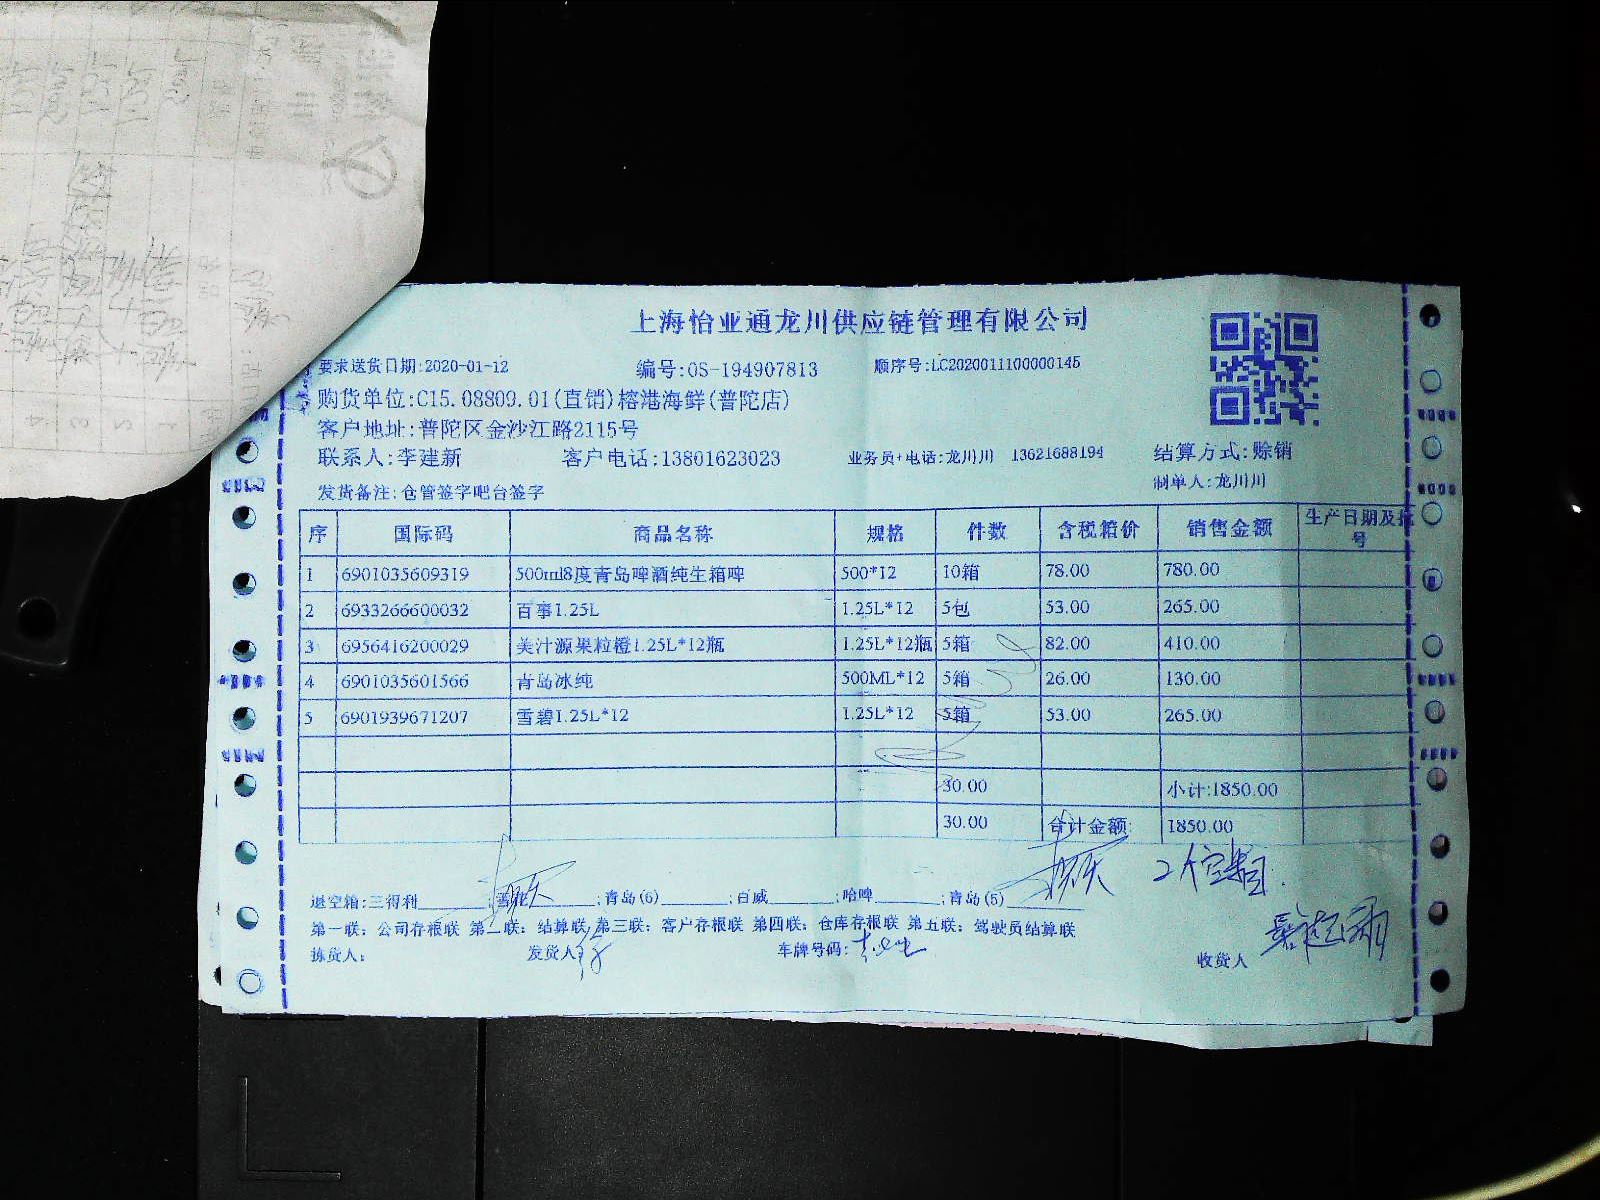 上海怡亚通龙川供应链管理有限公司
要求送货日期:2020-01-12 编号:OS-194907813 顺序号:LC2020011100000145
购货单位:C15.08809.01(直销)榕港海鲜(普陀店)
客户地址:普陀区金沙江路2115号
联系人:李建新 客户电话:13801623023 业务员+电话:龙川川 13621688194 结算方式:赊销
发货备注:仓管签字吧台签字 制单人:龙川川
序 国际码 商品名称 规格 件数 含税箱价 销售金额 生产日期及批号
1 6901035609319 500ml8度青岛啤酒纯生箱啤 500*12 10箱 78.00 780.00
2 6933266600032 百事1.25L 1.25L*12 5包 53.00 265.00
3 6956416200029 美汁源果粒橙1.25L*12瓶 1.25L*12瓶 5箱 82.00 410.00
4 6901035601566 青岛冰纯 500ML*12 5箱 26.00 130.00
5 6901939671207 雪碧1.25L*12 1.25L*12 5箱 53.00 265.00
30.00 小计:1850.00
30.00 合计金额: 1850.00
退空箱:三得利______;雪花______;青岛(6)______;百威______;哈啤______;青岛(5)______
第一联:公司存根联 第二联:结算联 第三联:客户存根联 第四联:仓库存根联 第五联:驾驶员结算联
拣货人: 发货人 车牌号码: 收货人